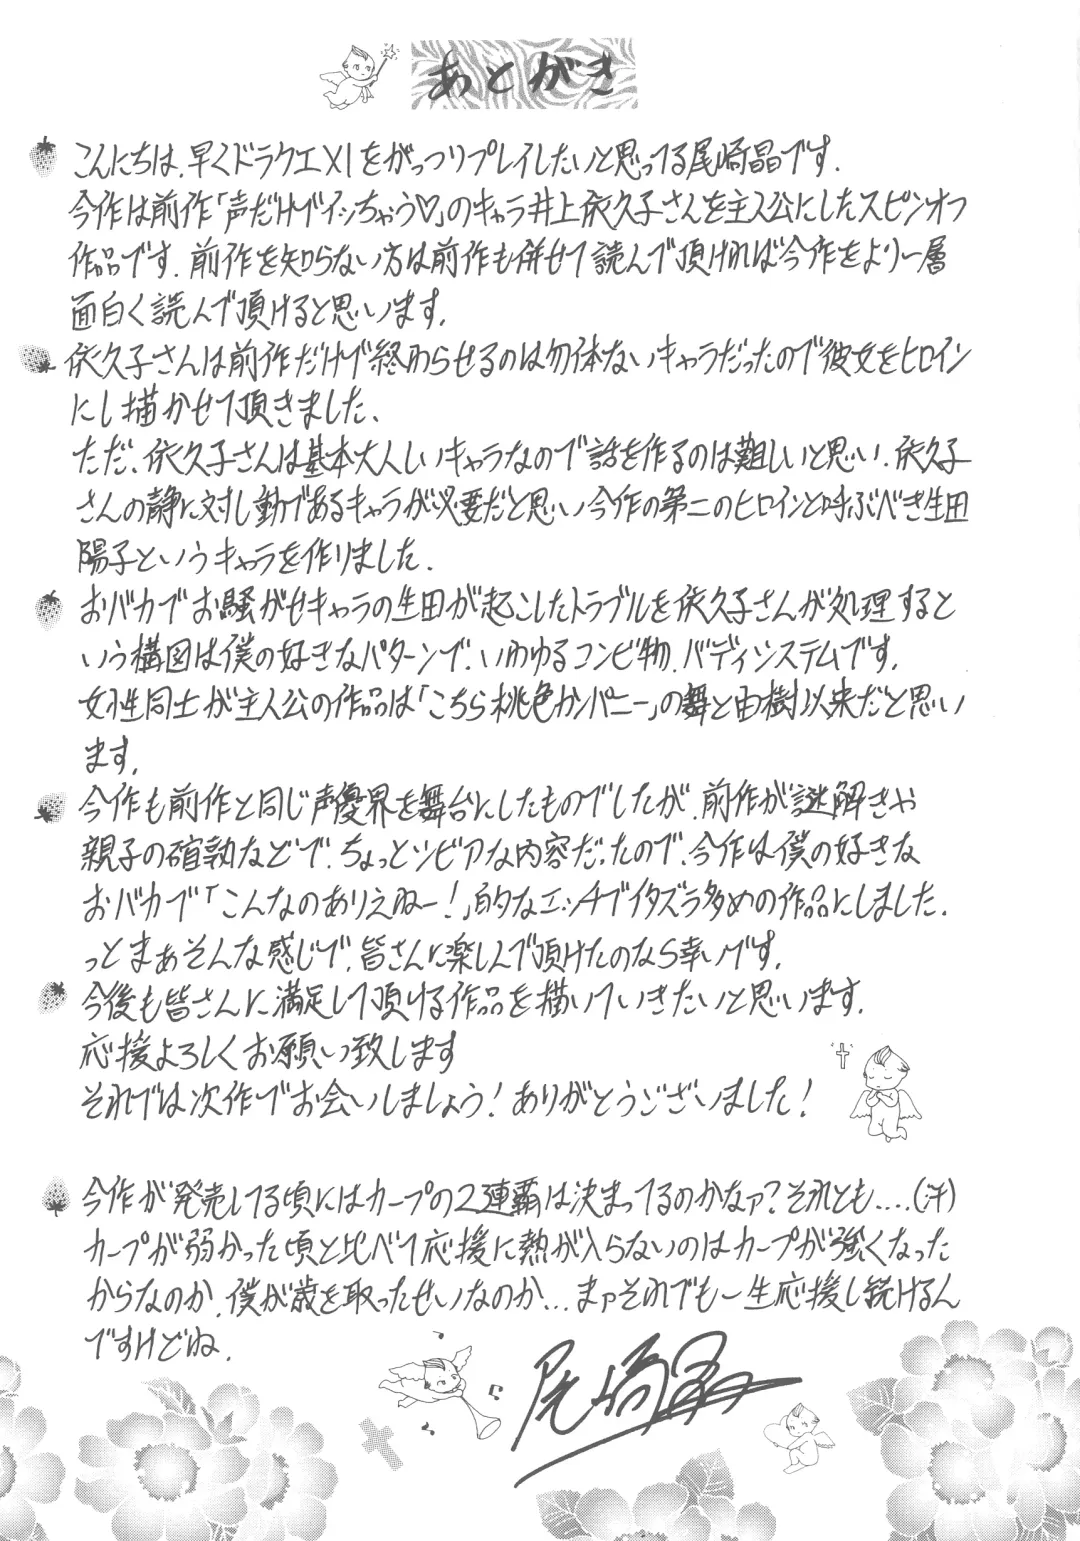 あとがき
こんにちは、早くドラクエXIをがっつりプレイしたいと思ってる尾崎晶です。
今作は前作「声だけでイッちゃう♡」のキャラ井上依久子さんを主人公にしたスピンオフ
作品です。前作を知らない方は前作も併せて読んで頂ければ今作をより一層
面白く読んで頂けると思います。
依久子さんは前作だけで終わらせるのは勿体ないキャラだったので彼女をヒロイン
にし描かせて頂きました、
ただ、依久子さんは基本大人しいキャラなので話を作るのは難しいと思い、依久子
さんの静に対し動であるキャラが必要だと思い今作の第二のヒロインと呼ぶべき生田
陽子というキャラを作りました。
おバカでお騒がせキャラの生田が起こしたトラブルを依久子さんが処理すると
いう構図は僕の好きなパターンで、いわゆるコンビ物、バディシステムです。
女性同士が主人公の作品は「こちら桃色カンパニー」の舞と由樹以来だと思い
ます。
今作も前作と同じ声優界を舞台にしたものでしたが、前作が謎解きや
親子の確執などで、ちょっとシビアな内容だったので、今作は僕の好きな
おバカで「こんなのありえねー!」的なエッチでイタズラ多めの作品にしました。
っとまぁそんな感じで、皆さんに楽しんで頂けたのなら幸いです。
今後も皆さんに満足して頂ける作品を描いていきたいと思います。
応援よろしくお願い致します
それでは次作でお会いしましょう!ありがとうございました!
今作が発売してる頃にはカープの2連覇は決まってるのかなァ?それとも....(汗)
カープが弱かった頃と比べて応援に熱が入らないのはカープが強くなった
からなのか、僕が歳を取ったせいなのか...まァそれでも一生応援し続けるん
ですけどね。
尾崎晶